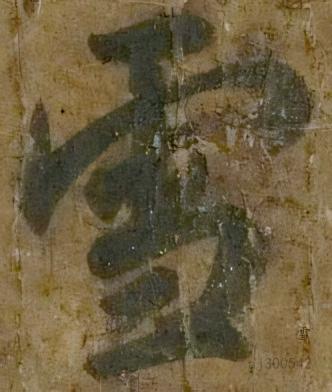 雪
雪
300542